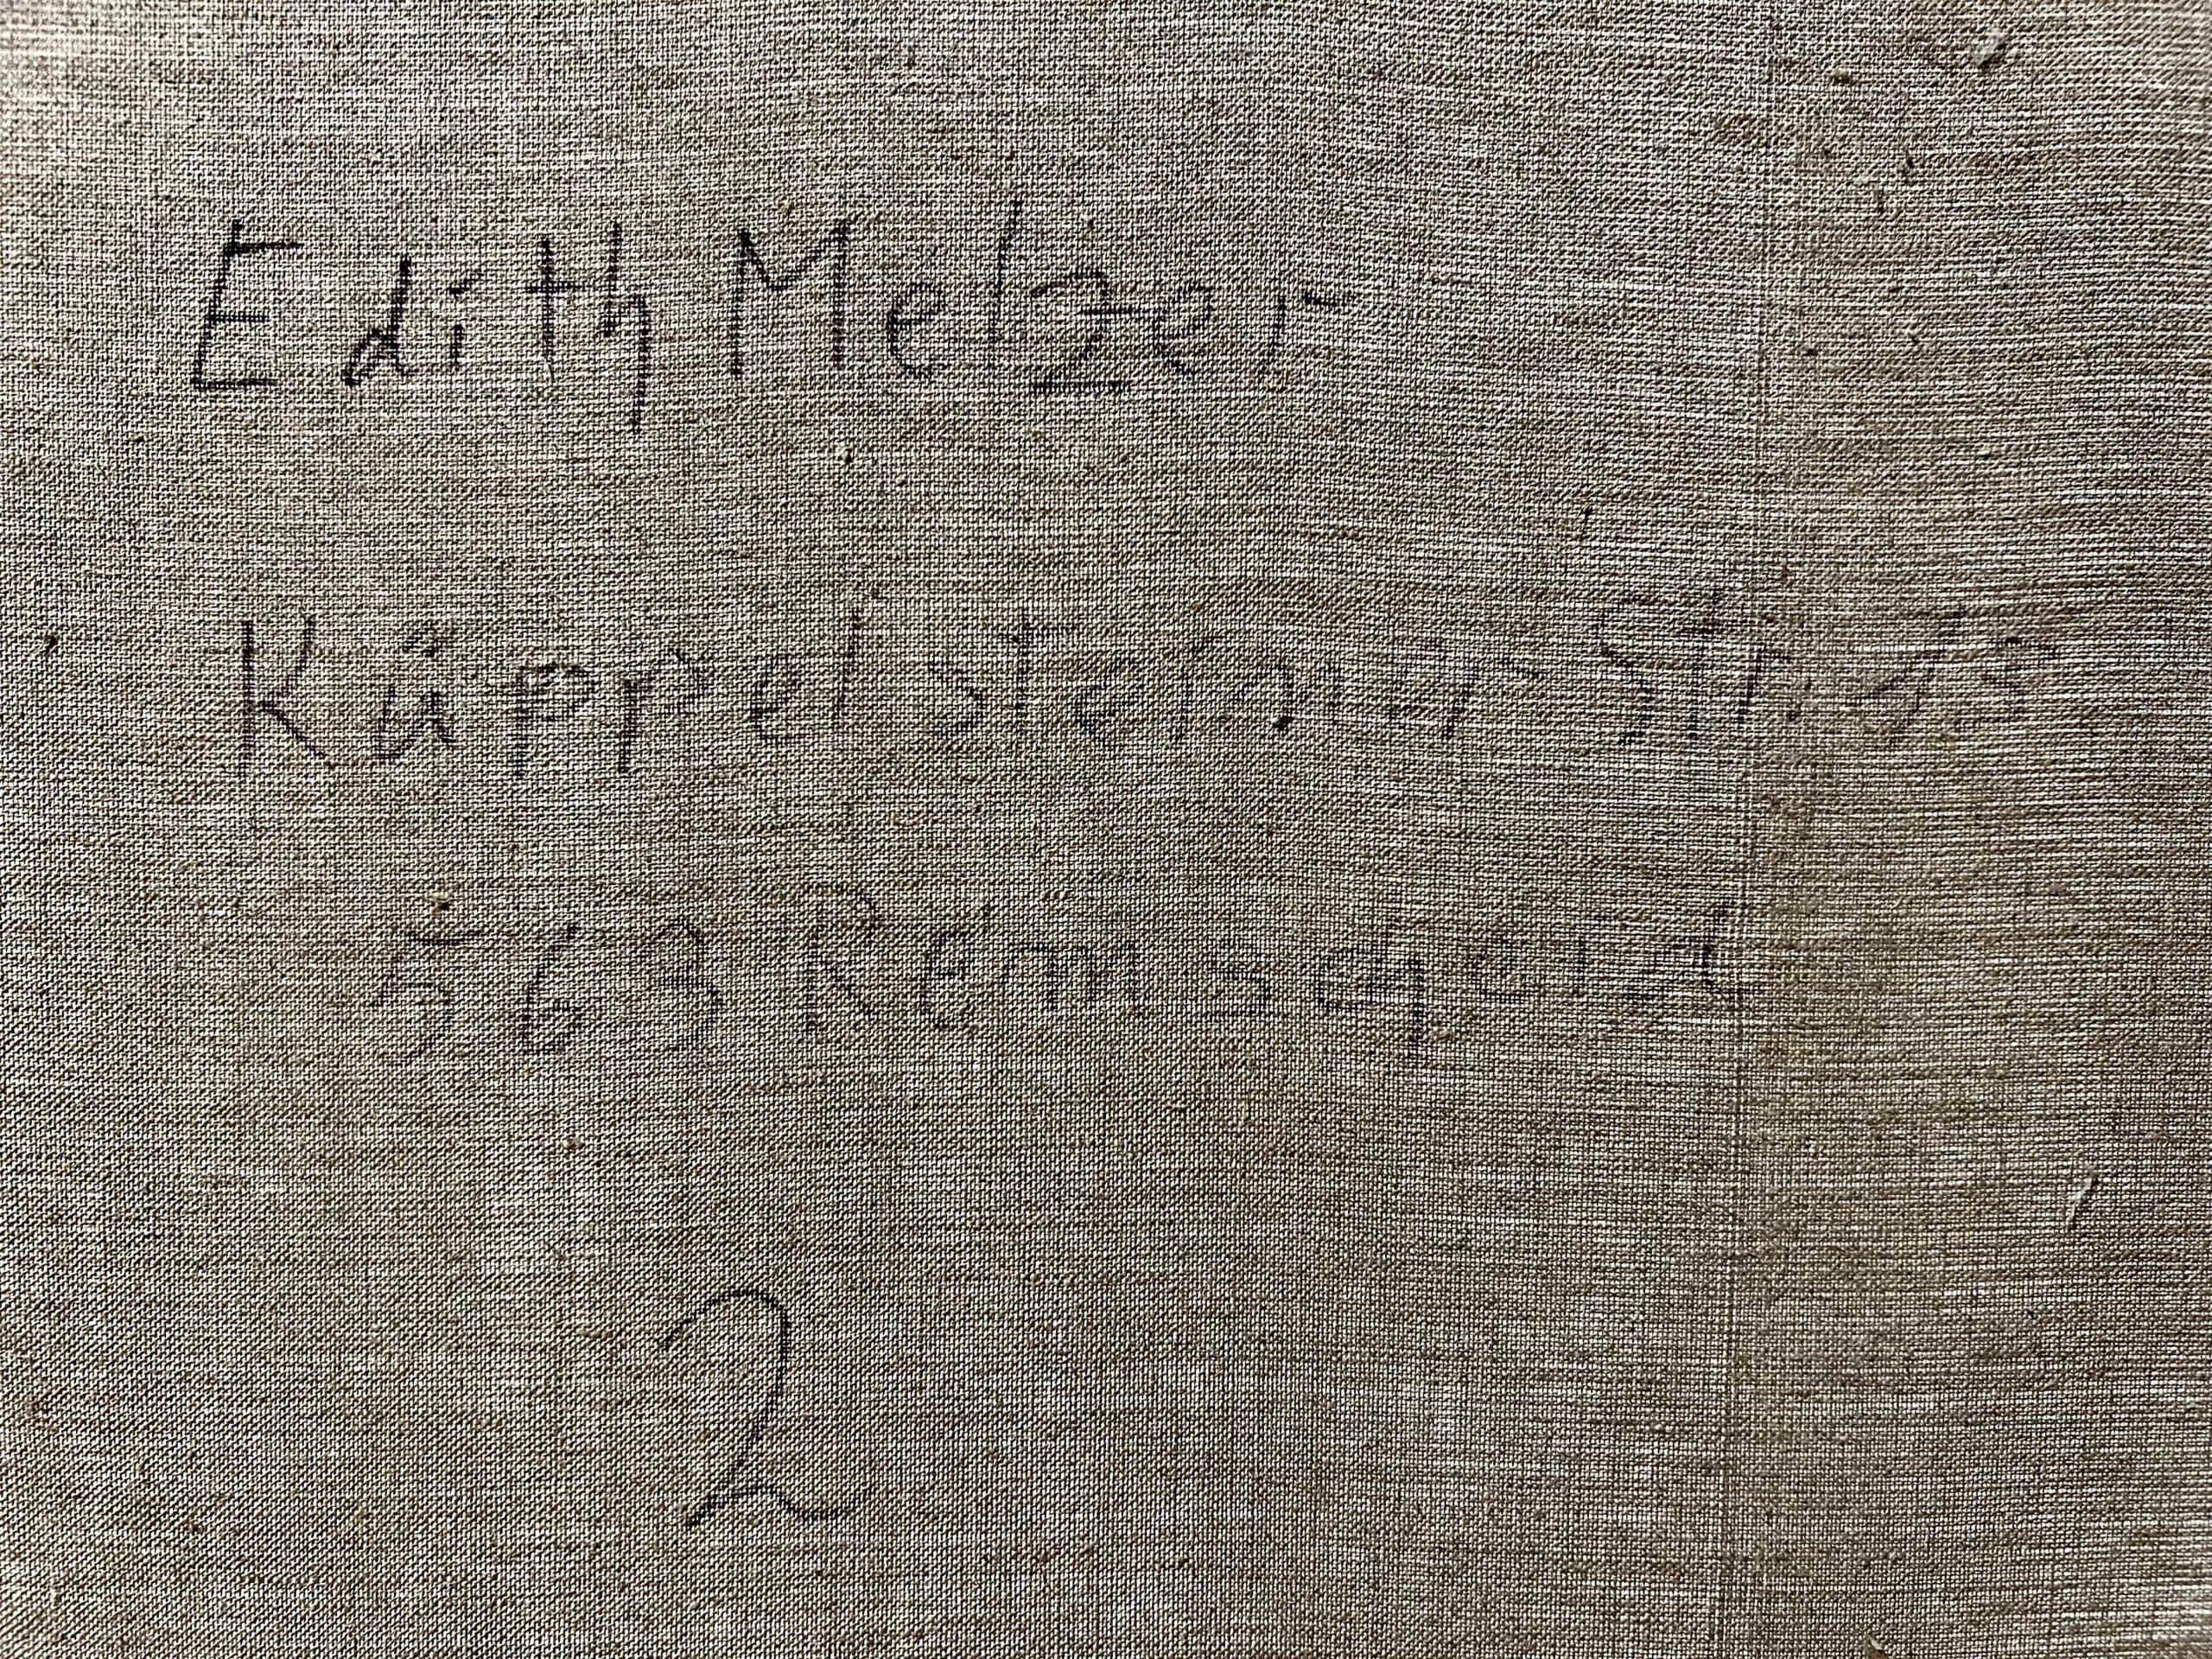 Edith Melzer
Käppelsteiner Str. 13
563 Remscheid
2